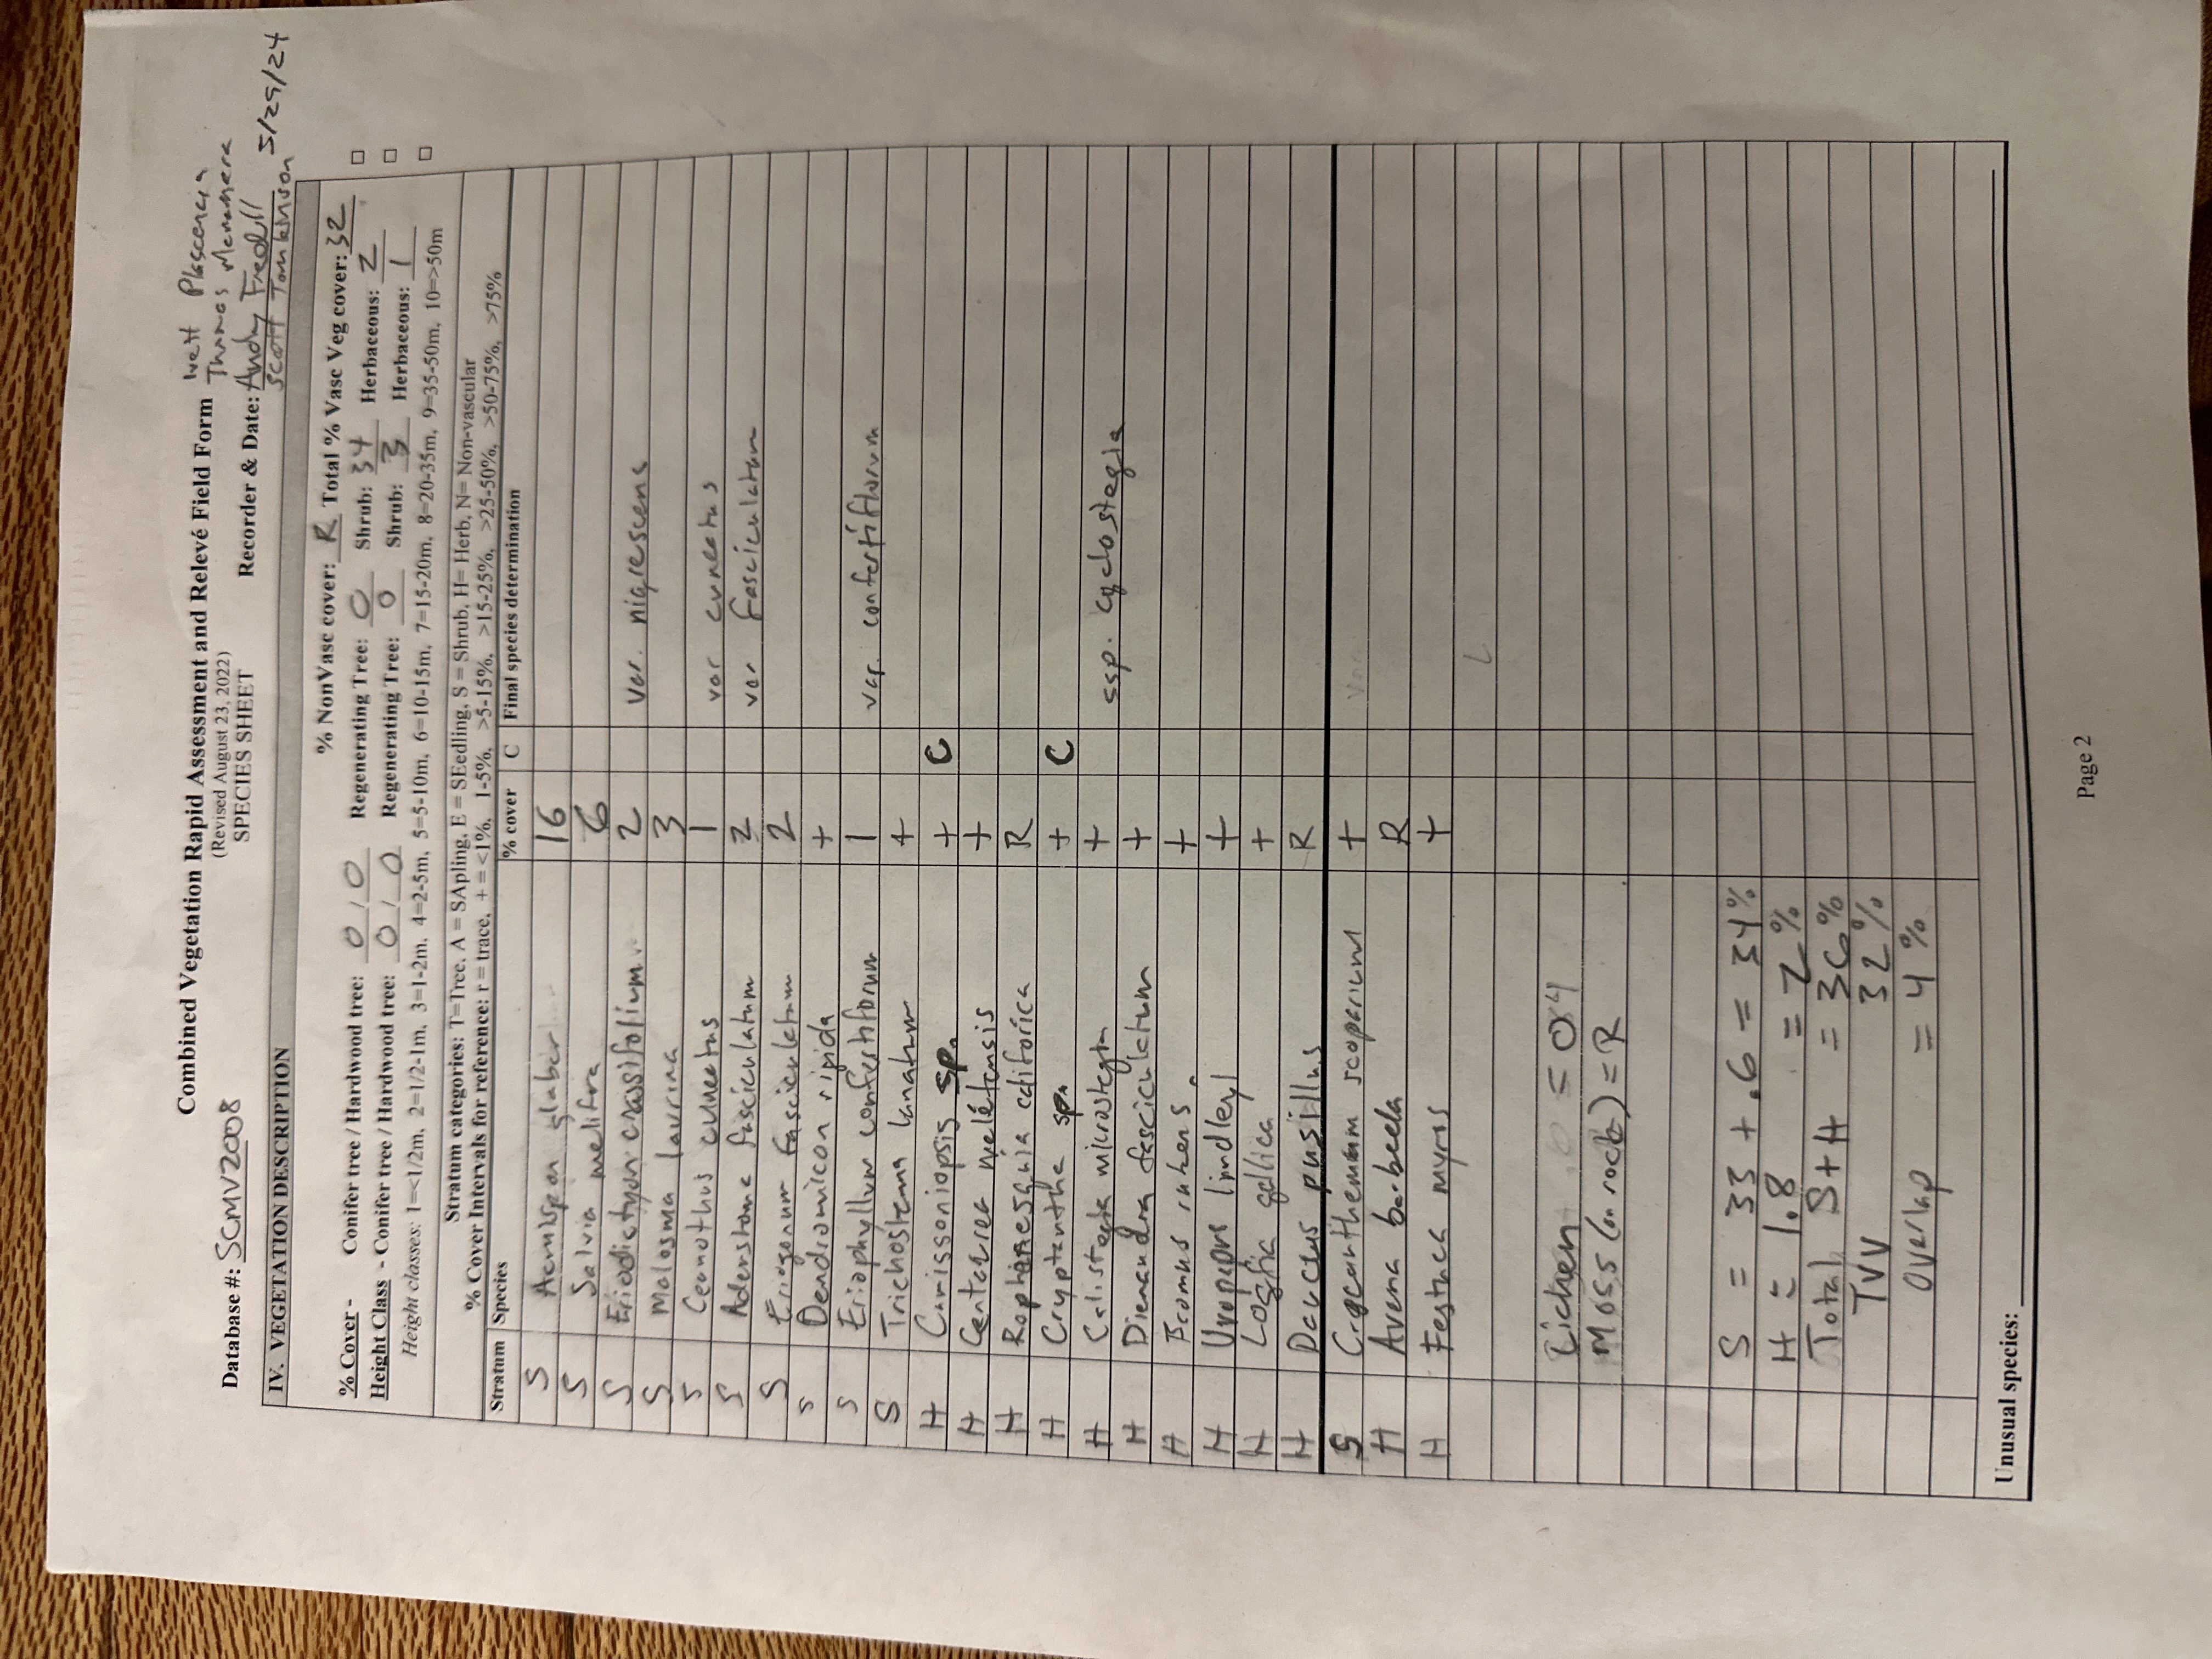 Combined Vegetation Rapid Assessment and Relevé Field Form
(Revised August 23, 2022)
SPECIES SHEET
Plascencia
Thomas
Database #: SCMV2008 Recorder & Date: Andy Fredell 5/29/24
Scott Tomkinson
IV. VEGETATION DESCRIPTION
% NonVasc cover: R Total % Vasc Veg cover: 32
% Cover - Conifer tree / Hardwood tree: 0 / 0 Regenerating Tree: 0 Shrub: 34 Herbaceous: 2 □
Height Class - Conifer tree / Hardwood tree: 0 / 0 Regenerating Tree: 0 Shrub: 3 Herbaceous: 1 □
Height classes: 1=<1/2m, 2=1/2-1m, 3=1-2m, 4=2-5m, 5=5-10m, 6=10-15m, 7=15-20m, 8=20-35m, 9=35-50m, 10=>50m □
Stratum categories: T=Tree, A = SApling, E = SEedling, S = Shrub, H= Herb, N= Non-vascular
% Cover Intervals for reference: r = trace, + = <1%, 1-5%, >5-15%, >15-25%, >25-50%, >50-75%, >75%
Stratum Species % cover C Final species determination
S Acmispon glaber 16
S Salvia melifra 6
S Eriodictyon crassifolium 2 var. nigrescens
S Malosma laurina 3
S Ceonothus cuneatus 1 var cuneatus
S Adenstoma fasciculatum 2 var fasciculatum
S Eriogonum fasciculatum 2
S Dendromicon rigida +
S Eriophyllum confertiflorum 1 var. confertiflorum
S Trichostema lanatum +
H Camissoniopsis sp. + C
H Centaurea melitensis +
H Raphinesquia califorica R
H Cryptantha sp. + C
H Calistegia microstegia + ssp. cyclostegia
H Dienandra fasciculatum +
H Bromus rubens +
H Uropapus lindleyi +
H Logfia gallica +
H Daucus pusillus R
S Crocanthemum scoparium +
H Avena barbata R
H Festuca myros +
Lichen =
Moss (on rock) = R
S = 33 + .6 = 34%
H = 1.8 = 2%
Total S+H = 36%
TVV 32%
overlap = 4%
Unusual species:
Page 2